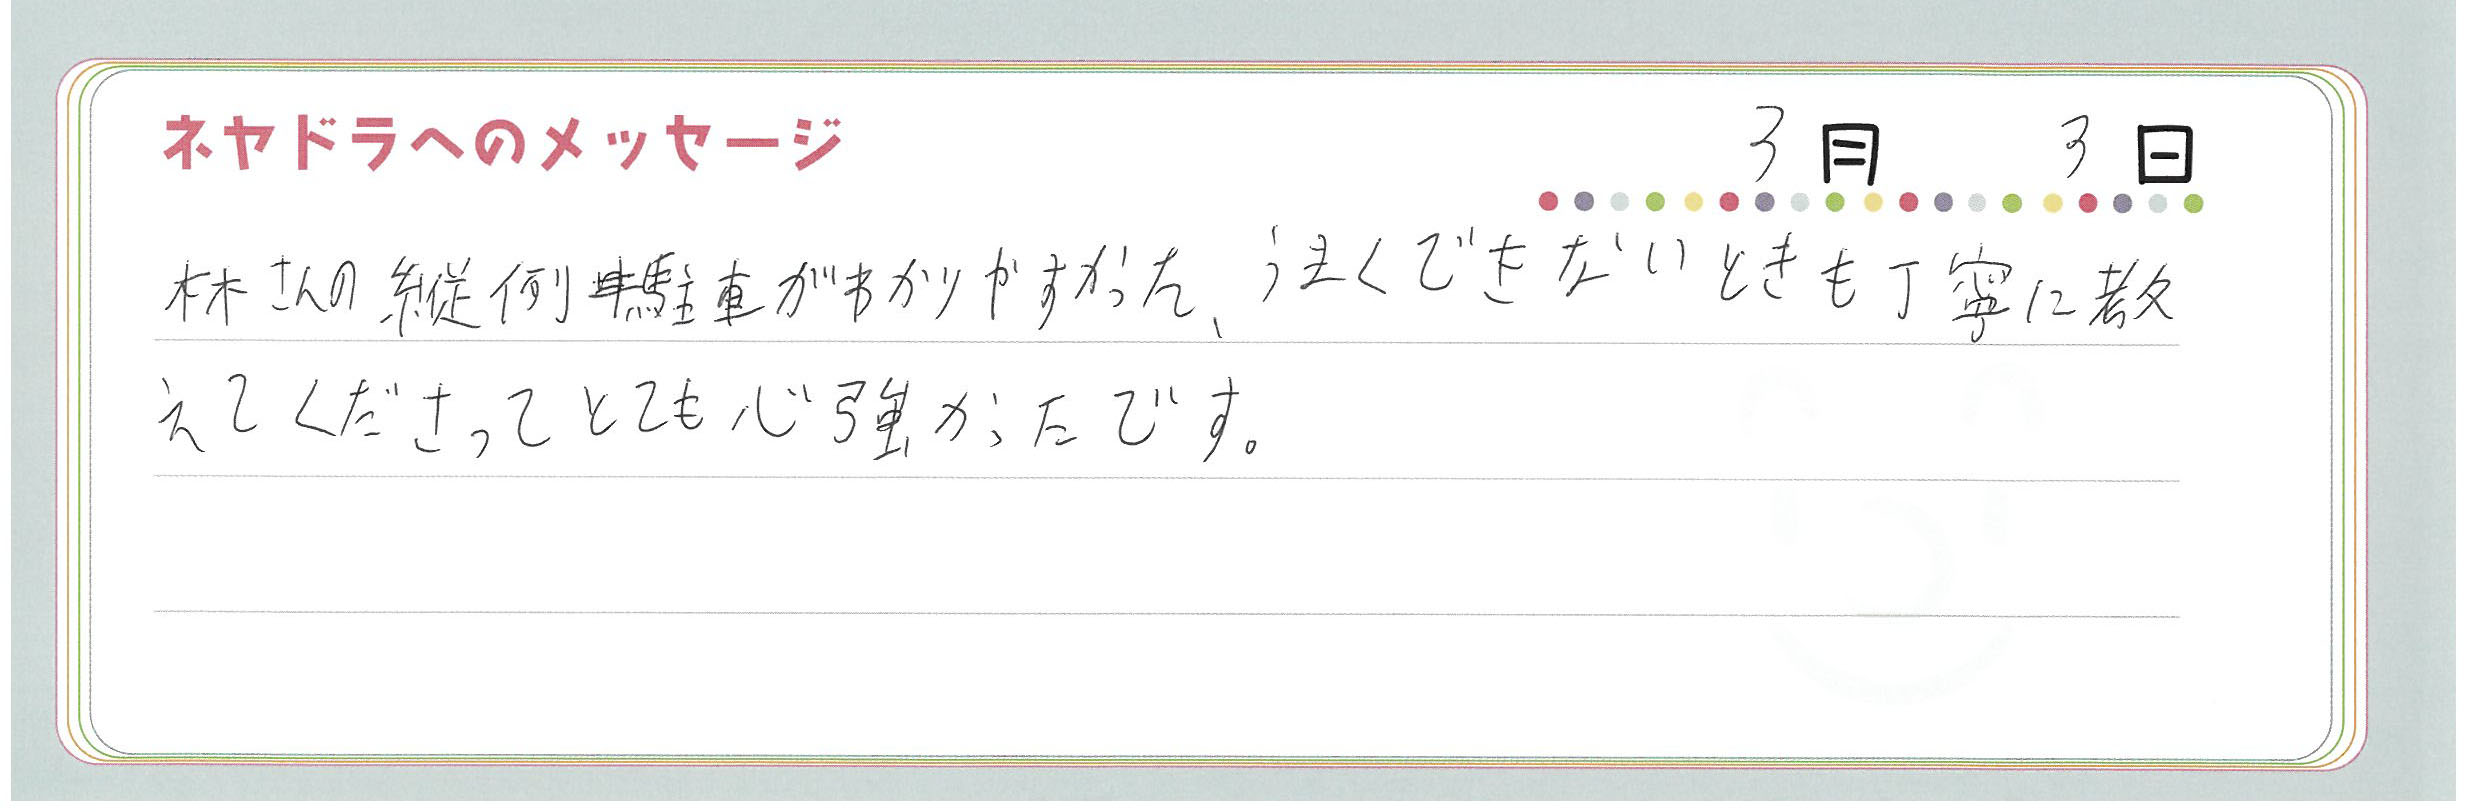 ネヤドラへのメッセージ
3月 3日
林さんの縦例駐車がわかりやすかった、うまくできないときも丁寧に教
えてくださってとても心強かったです。